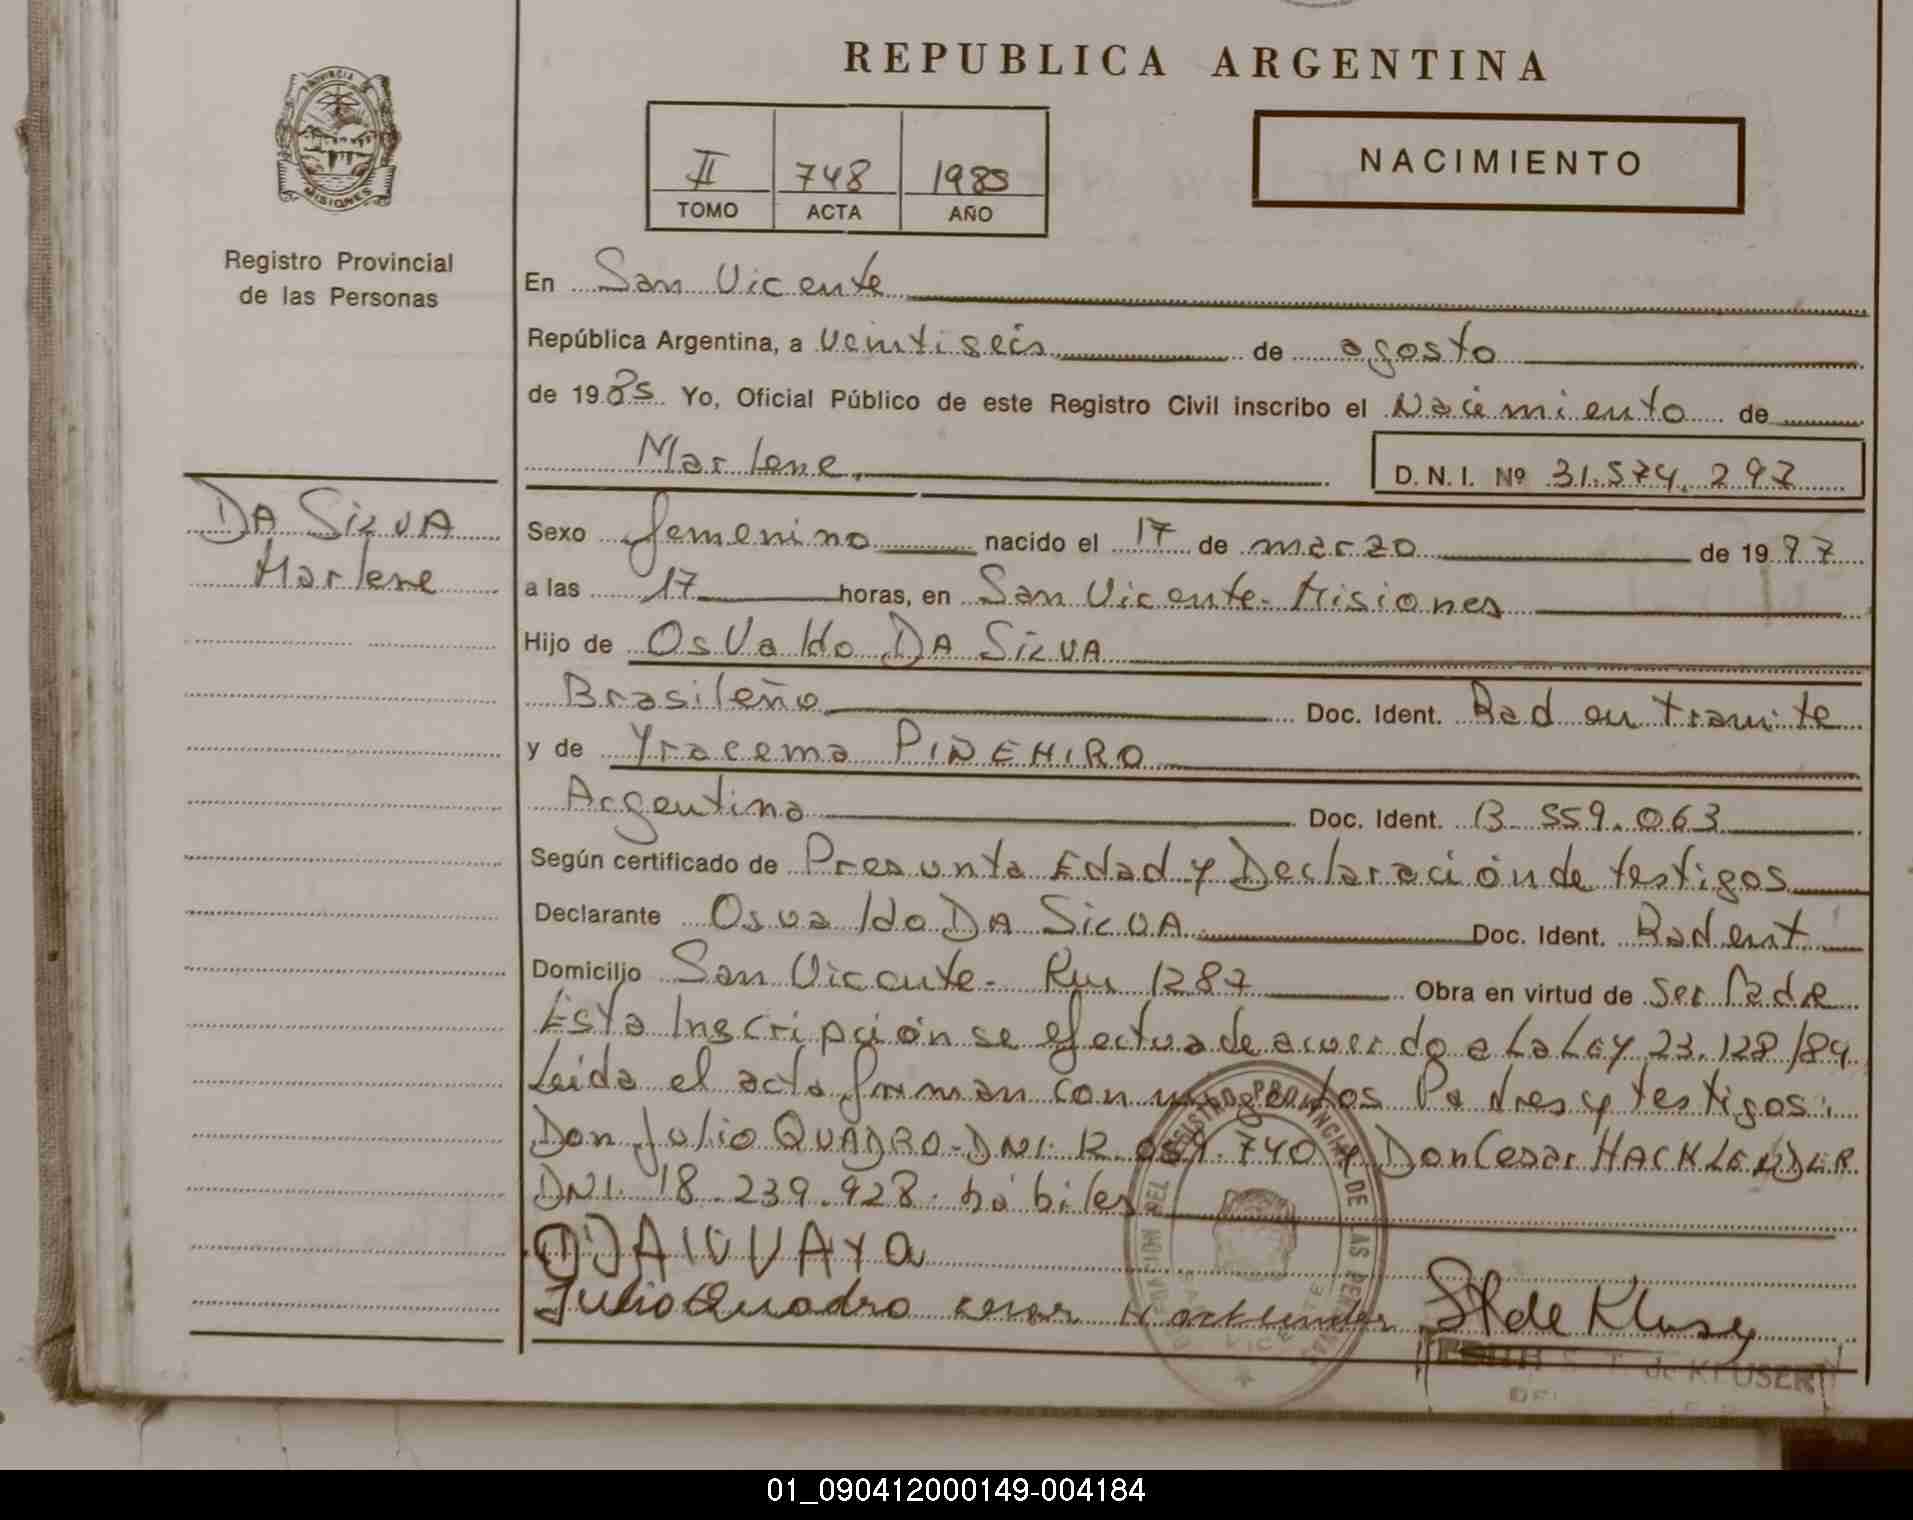 REPUBLICA ARGENTINA
PROVINCIA DE
MISIONES
Registro Provincial
de las Personas
II 748 1985
TOMO ACTA AÑO
NACIMIENTO
En San Vicente
República Argentina, a veintiseis de agosto
de 1985 Yo, Oficial Público de este Registro Civil inscribo el Nacimiento de
Marlene
D. N. I. Nº 31.574.297
DA SILVA
Marlene
Sexo femenino nacido el 17 de marzo de 1977
a las 17 horas, en San Vicente - Misiones
Hijo de Osvaldo DA SILVA
Brasileño Doc. Ident. Rad en tramite
y de Yracema PIÑEHIRO
Argentina Doc. Ident. 13.559.063
Según certificado de Presunta Edad y Declaración de testigos
Declarante Osvaldo DA SILVA Doc. Ident. Rad en t
Domicilio San Vicente - Km 1287 Obra en virtud de ser Padre
Esta Inscripción se efectua de acuerdo a La Ley 23.128/84
Leida el acta firman conmigo los Padres y testigos:
Don Julio QUADRO - DNI. 12.059.740 y Don Cesar HACKLENDER
DNI. 18.239.928. hábiles
Julio Quadro Cesar Hacklender S T de Kluser
S. T. de KLUSER
01_090412000149-004184